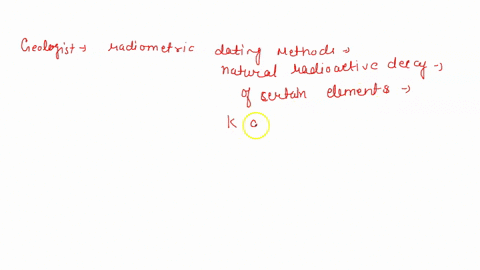 Geologist → radiometric dating Methods →
natural radioactive decay →
of sertain elements →
K C